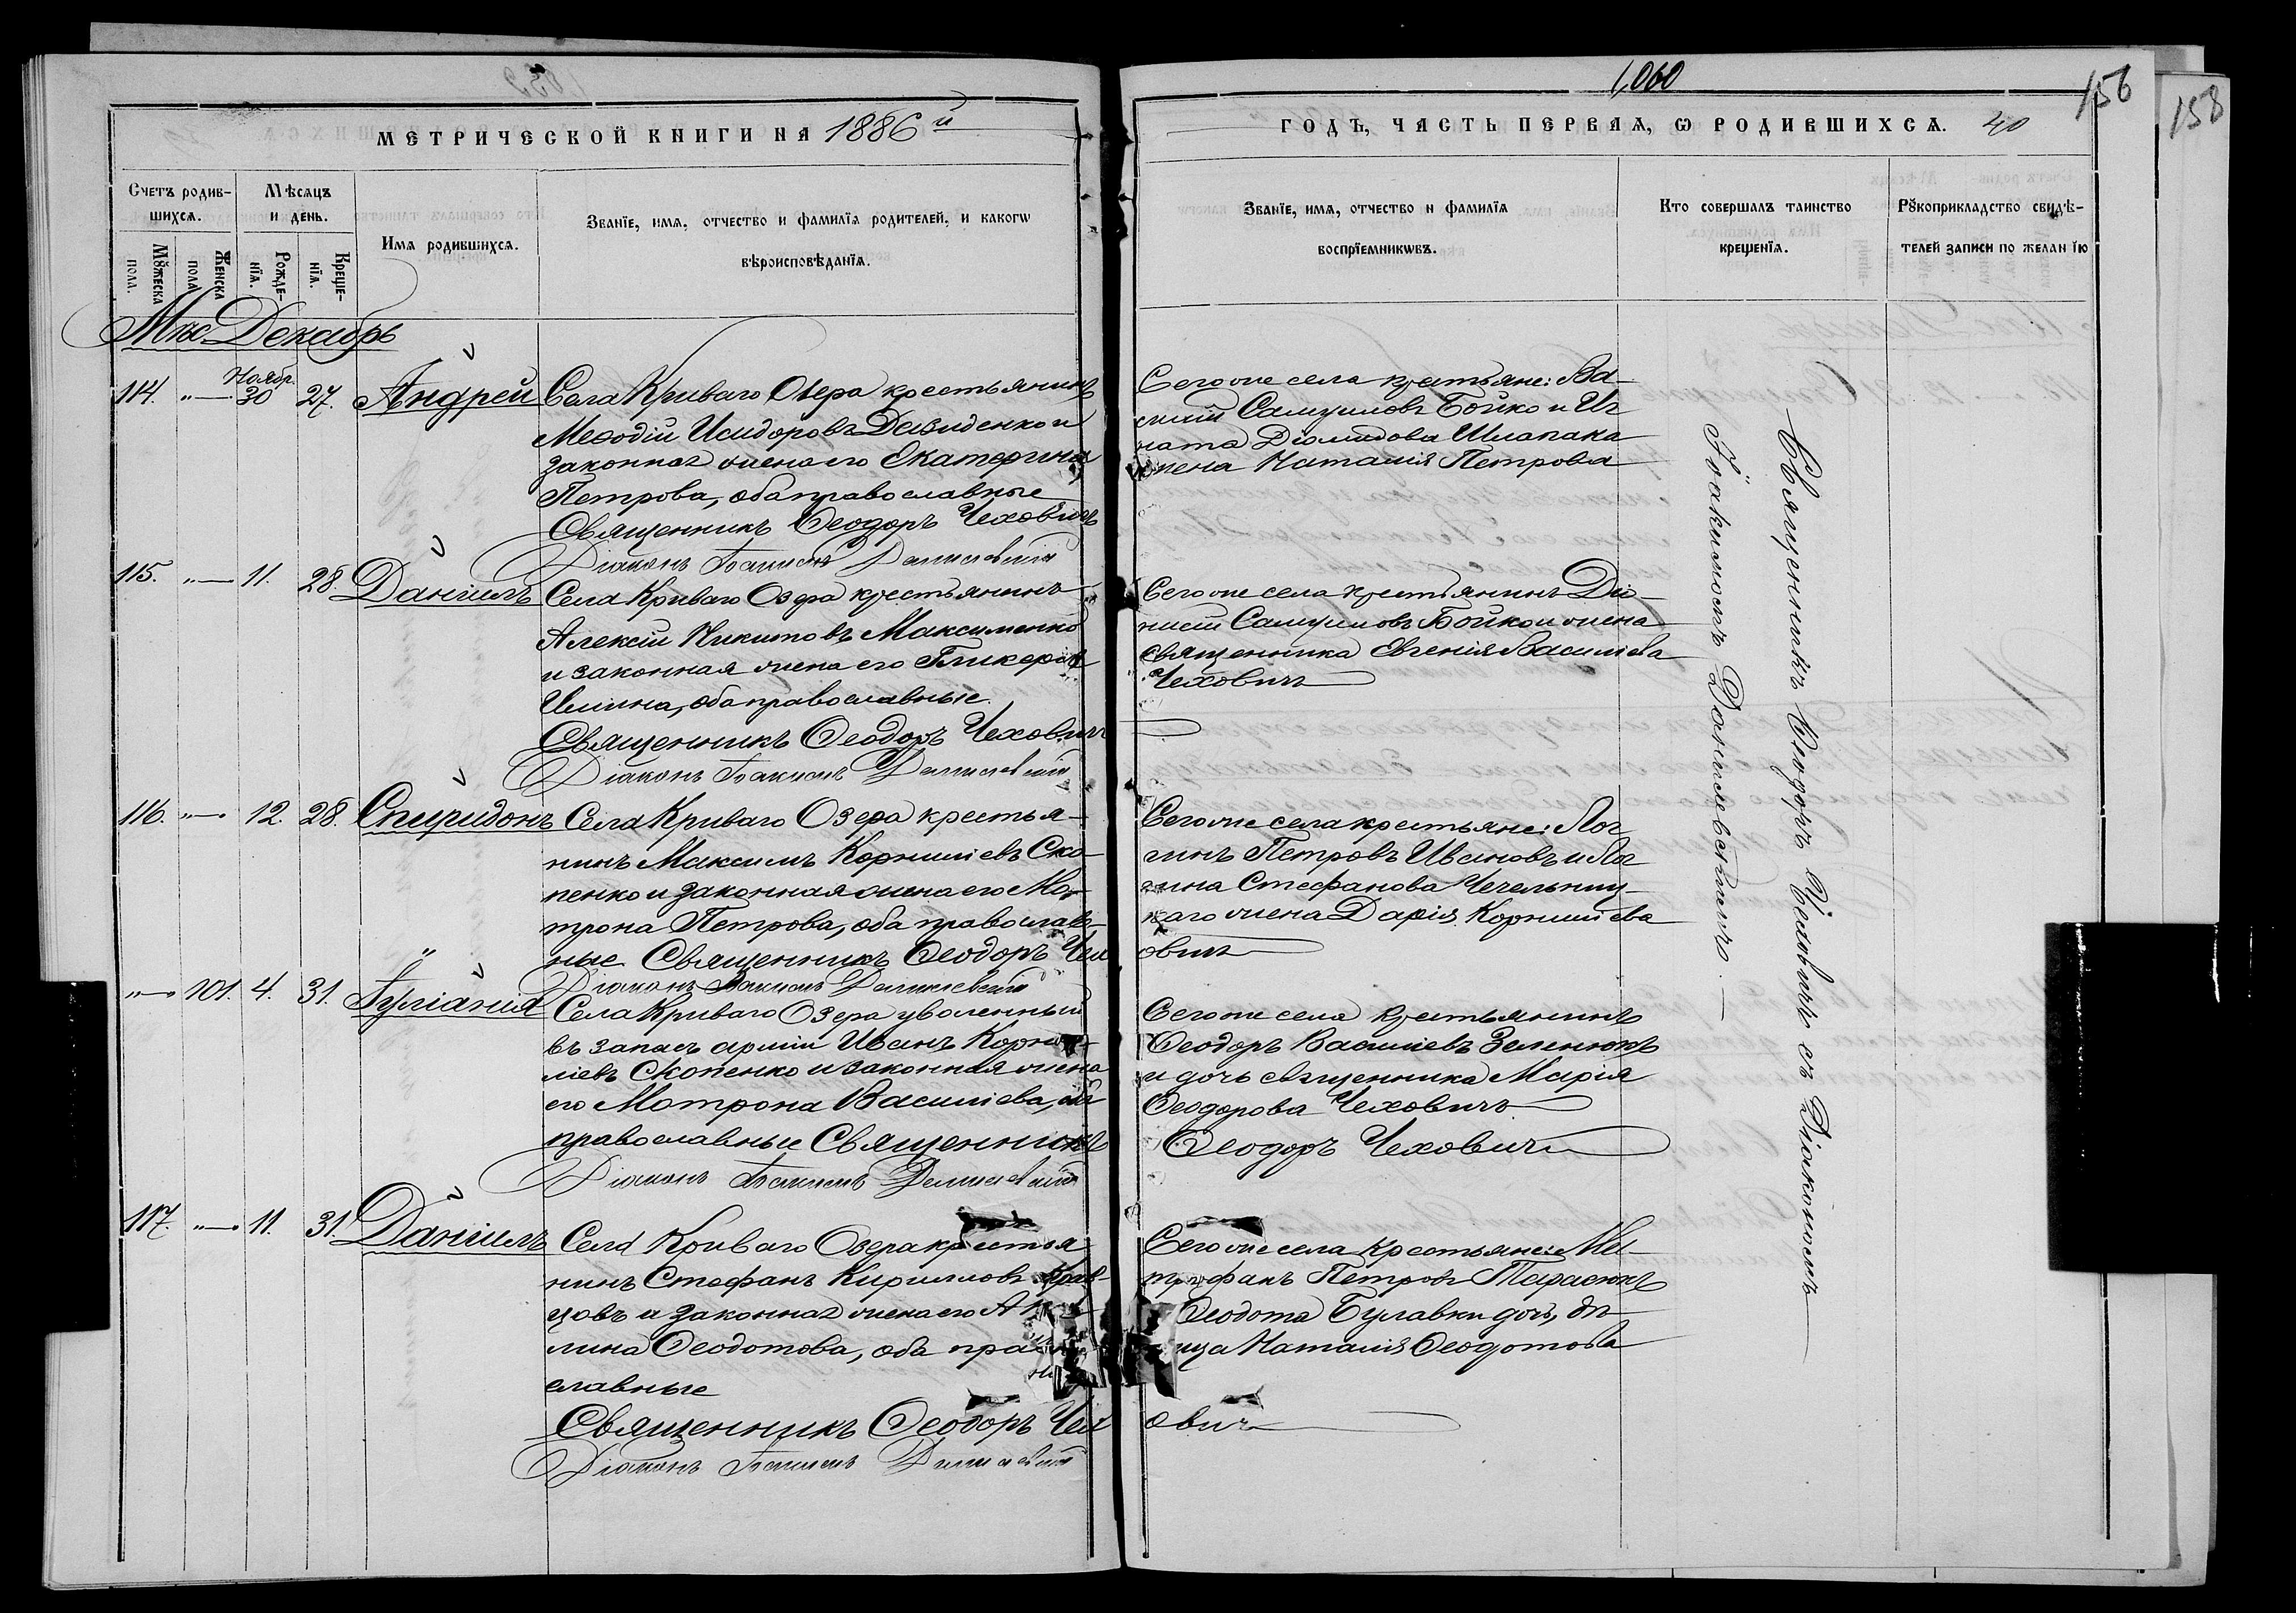 1,060
156
158
МЕТРИЧЕСКОЙ КНИГИ НА 1886й
ГОДЪ, ЧАСТЬ ПЕРВАЯ, Ѡ РОДИВШИХСѦ. 40
Счетъ родив-
шихсѧ.
Мѹжеска
пола.
Женска
пола
Мѣсѧцъ
и день.
Рожде-
нїѧ.
Креще-
нїѧ.
Имѧ родившихсѧ.
Званїе, имѧ, отчество и фамилїѧ родителей, и какогѡ
вѣроисповѣданїѧ.
Званїе, имѧ, отчество и фамилїѧ
воспрїемникѡвъ.
Кто совершалъ таинство
крещенїѧ.
Рѹкоприкладство свидѣ-
телей записи по желанїю
Мѣс. Декабрь
114. "— Ноябр. 30 27. Андрей
Села Криваго Озера крестьянинъ
Меѳодій Исидоровъ Давиденко и
законная жена его Екатерина
Петрова, оба православные
Священникъ Ѳеодоръ Чеховичъ
Діаконъ Іоакимъ Данилевскій
Сего же села крестьяне: Ва-
силій Самуиловъ Бойко и Иг
ната Діомидова Шлапака
жена Наталія Петрова
115. "— 11. 28 Даніилъ
Села Криваго Озера крестьянинъ
Алексій Никитовъ Максименко
и законная жена его Гликерія
Ильина, оба православные.
Священникъ Ѳеодоръ Чеховичъ
Діаконъ Іоакимъ Данилевскій
Сего же села крестьянинъ Діо-
нисій Самуиловъ Бойко и жена
священника Евгенія Васильева
Чеховичъ
116. "— 12. 28. Спиридонъ
Села Криваго Озера крестья-
нинъ Максимъ Корниліевъ Ско-
пенко и законная жена его Мо-
трона Петрова, оба православ-
ные Священникъ Ѳеодоръ Чех
овичъ
Діаконъ Іоакимъ Данилевскій
Сего же села крестьяне: Лог
гинъ Петровъ Ивановъ и Лог
гина Стефанова Чечельниц-
каго жена Дарія Корниліева
"— 101. 4. 31. Іуліанія
Села Криваго Озера уволенный
въ запасъ арміи Иванъ Корни-
ліевъ Скопенко и законная жена
его Мотрона Василіева, оба
православные Священникъ
Ѳеодоръ Чеховичъ
Діаконъ Іоакимъ Данилевскій
Сего же села крестьянинъ
Ѳеодоръ Василіевъ Зеленюкъ
и дочь священника Марія
Ѳеодорова Чеховичъ
117. "— 11. 31. Даніилъ
Села Криваго Озера крестья
нинъ Стефанъ Кирилловъ
и законная жена его
лина Ѳеодотова, оба право
славные
Священникъ Ѳеодоръ Чех
овичъ
Діаконъ Іоакимъ Данилевскій
Сего же села крестьяне: Ми-
трофанъ Петровъ Тарасюкъ
Ѳеодота Булавки дочь, дѣ-
вица Наталія Ѳеодотова
Священникъ Ѳеодоръ Чеховичъ съ Діакономъ
Іоакимомъ Данилевскимъ.